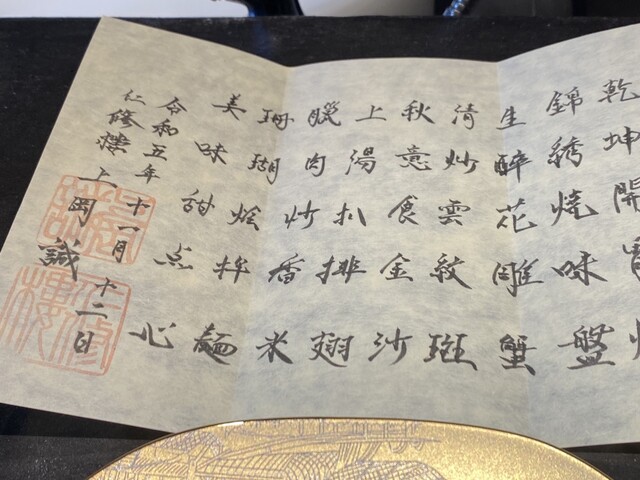 乾坤開胃
錦綉焼味盤
生酔花雕蟹
清炒雲紋斑
秋意食金沙
上湯扒排翅
臘肉炒香米
珊瑚烩拌麺
美味甜点心
令和五年十一月十二日
仁修樓 上岡誠